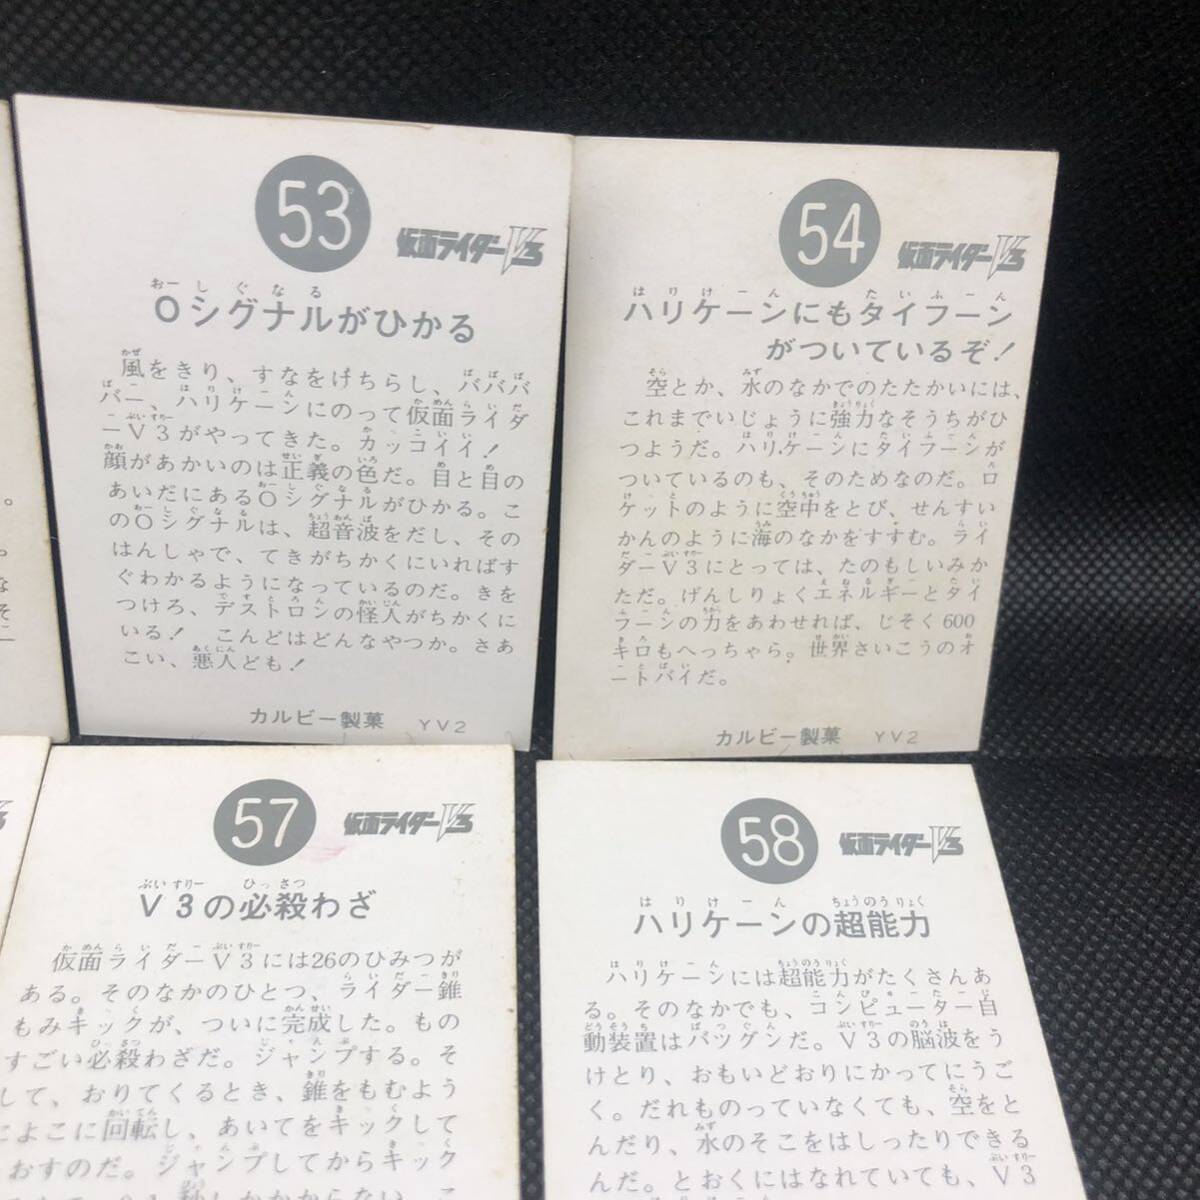 53
仮面ライダーV3
おーしぐなる
Oシグナルがひかる
風をきり、すなをけちらし、バババ
バー、ハリケーンにのって仮面ライダ
ーV3がやってきた。カッコイイ！
顔があかいのは正義の色だ。目と目の
あいだにあるOシグナルがひかる。こ
のOシグナルは、超音波をだし、その
はんしゃで、てきがちかくにいればす
ぐわかるようになっているのだ。きを
つけろ、デストロンの怪人がちかくに
いる！　こんどはどんなやつか。さあ
こい、悪人ども！
カルビー製菓　YV2
54
仮面ライダーV3
はりけーん　たいふーん
ハリケーンにもタイフーン
がついているぞ！
空とか、水のなかでのたたかいには、
これまでいじょうに強力なそうちがひ
つようだ。ハリケーンにタイフーンが
ついているのも、そのためなのだ。ロ
ケットのように空中をとび、せんすい
かんのように海のなかをすすむ。ライ
ダーV3にとっては、たのもしいみか
ただ。げんしりょくエネルギーとタイ
フーンの力をあわせれば、じそく600
キロもへっちゃら。世界さいこうのオ
ートバイだ。
カルビー製菓　YV2
57
仮面ライダーV3
ぶいすりー　ひっさつ
V3の必殺わざ
仮面ライダーV3には26のひみつが
ある。そのなかのひとつ、ライダー錐
もみキックが、ついに完成した。もの
すごい必殺わざだ。ジャンプする。そ
して、おりてくるとき、錐をもむよう
によこに回転し、あいてをキックして
おすのだ。ジャンプしてからキック
秒しかかからない。こ
58
仮面ライダーV3
はりけーん　ちょうのうりょく
ハリケーンの超能力
ハリケーンには超能力がたくさんあ
る。そのなかでも、コンピューター自
動装置はバツグンだ。V3の脳波をう
けとり、おもいどおりにかってにうご
く。だれものっていなくても、空をと
んだり、水のそこをはしったりできる
んだ。とおくにはなれていても、V3